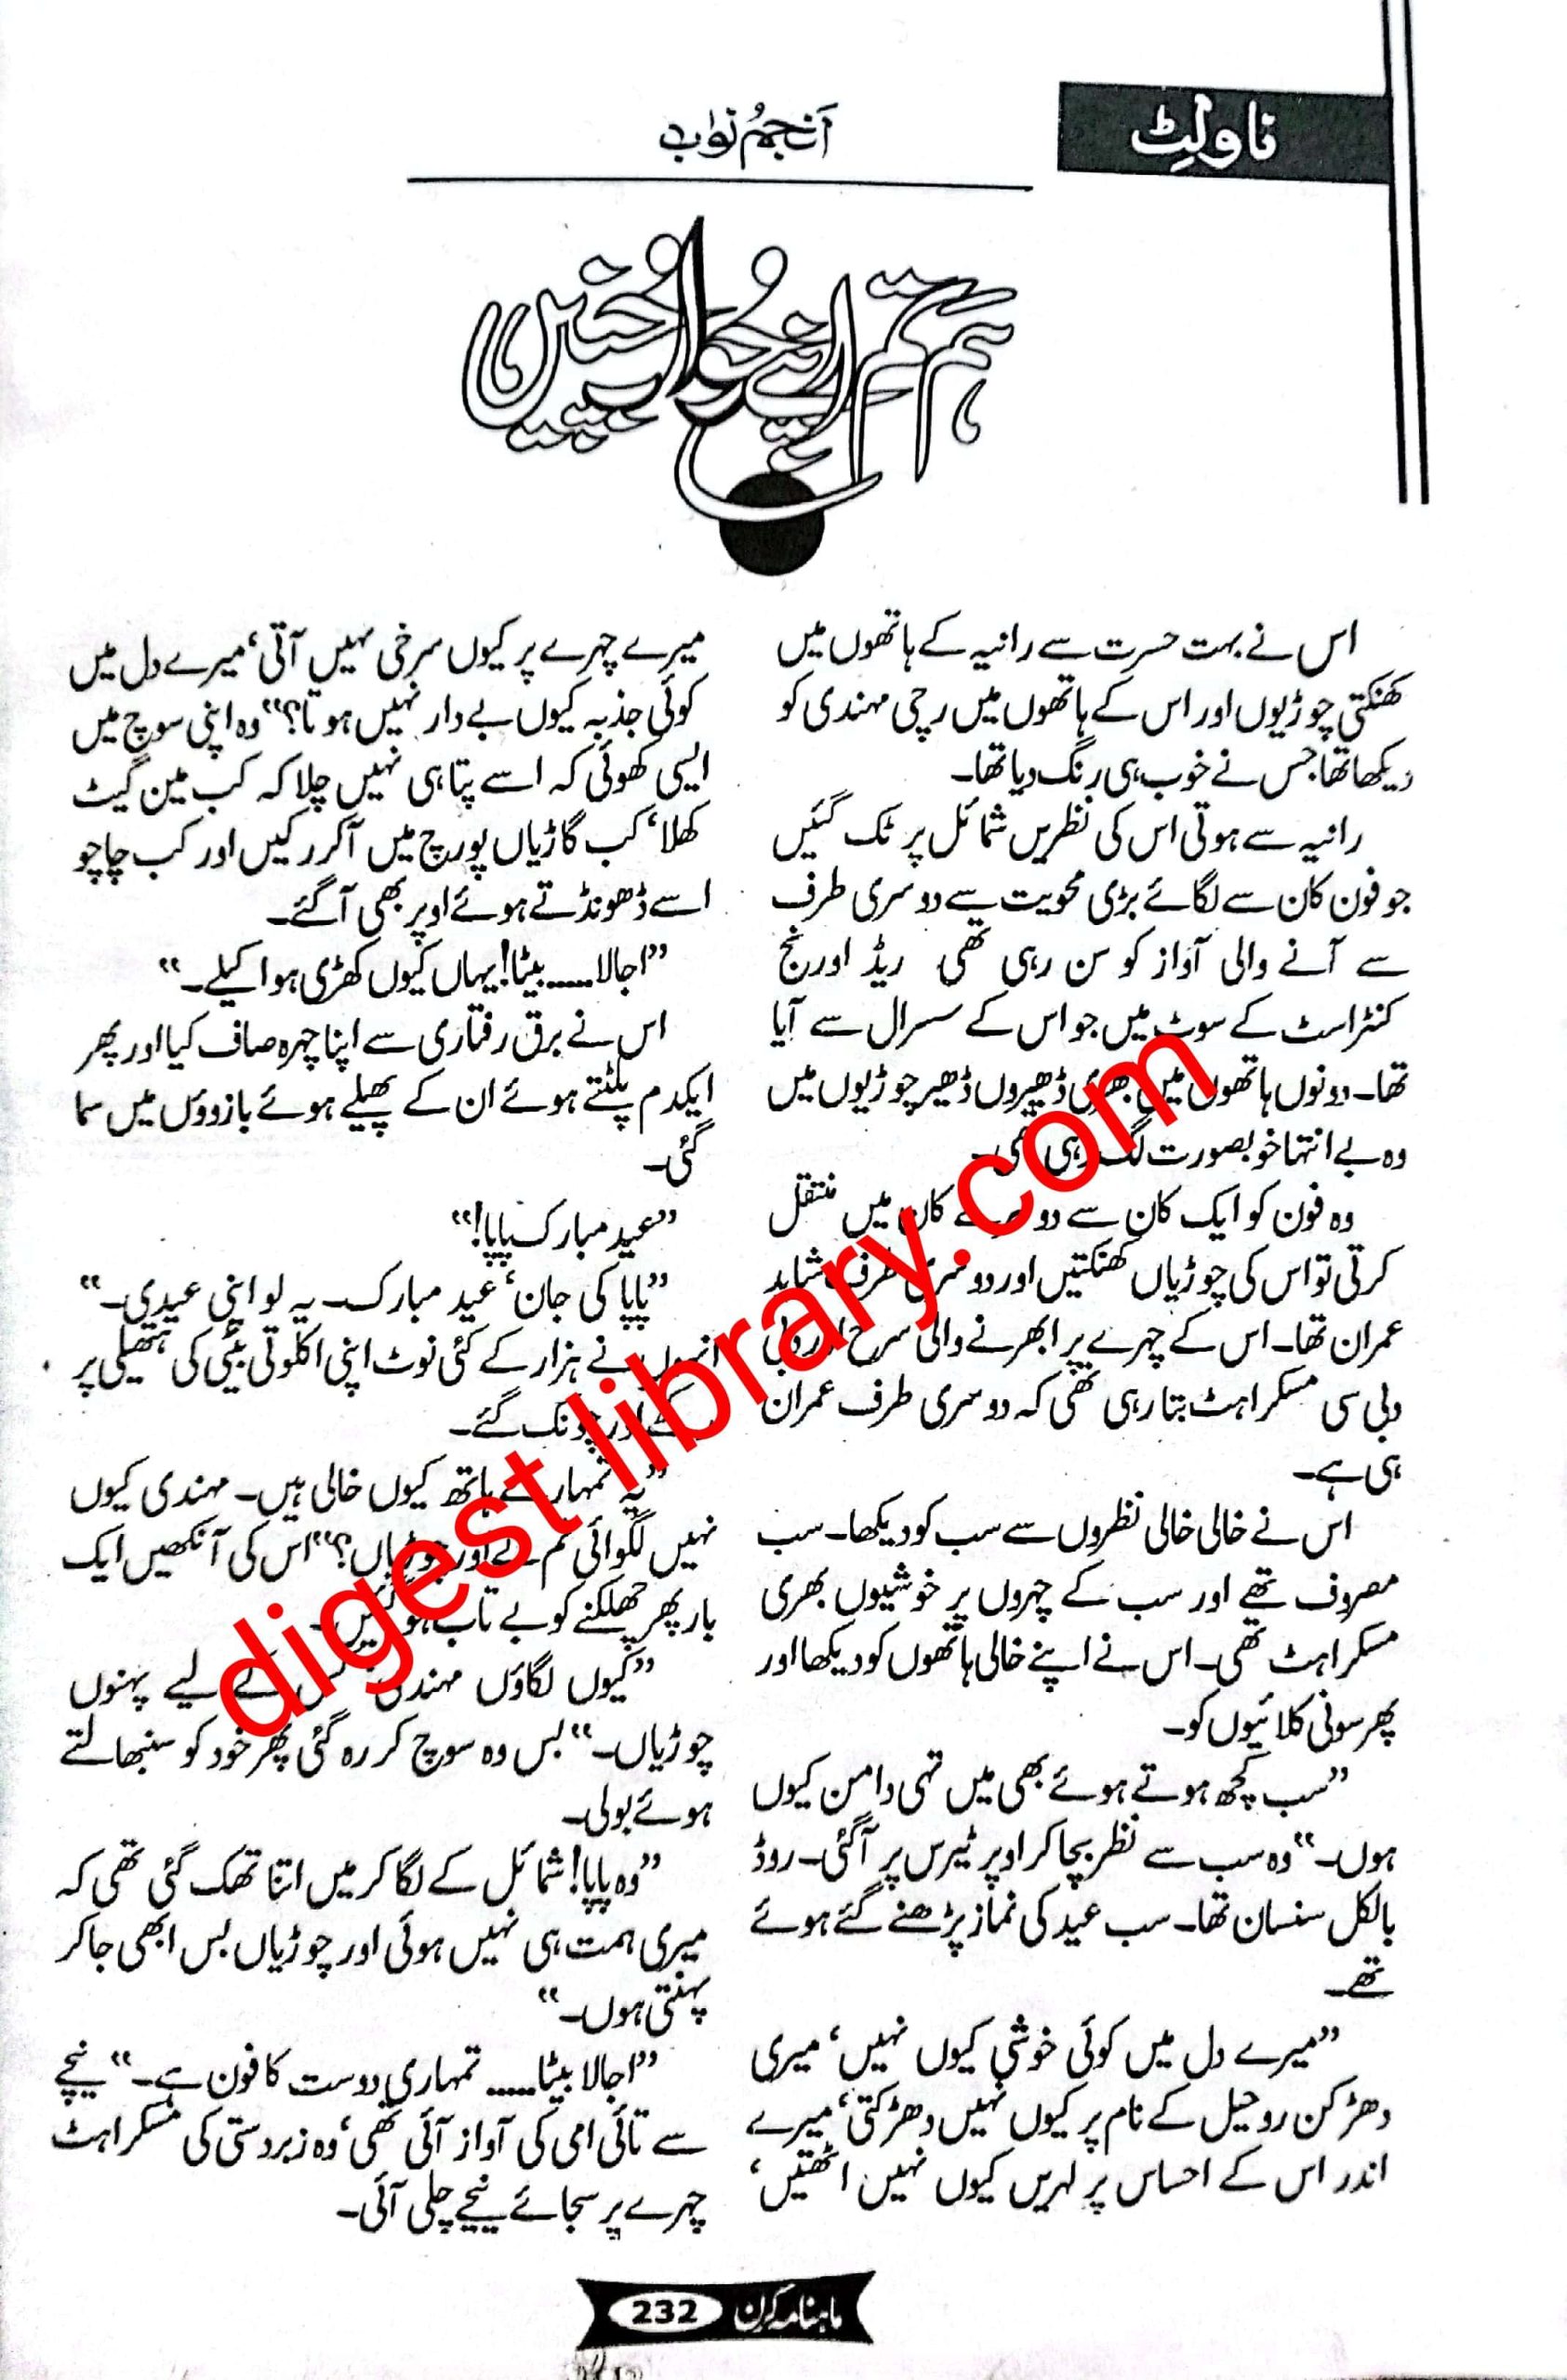 ناولٹ
انجم نواب
ہم تم اپنے خواب چنیں
اس نے بہت حسرت سے رانیہ کے ہاتھوں میں
کھنکتی چوڑیوں اور اس کے ہاتھوں میں رچی مہندی کو
دیکھا تھا جس نے خوب ہی رنگ دیا تھا۔
رانیہ سے ہوتی اس کی نظریں شمائل پر ٹک گئیں
جو فون کان سے لگائے بڑی محویت سے دوسری طرف
سے آنے والی آواز کو سن رہی تھی ریڈ اورنج
کنٹراسٹ کے سوٹ میں جو اس کے سسرال سے آیا
تھا۔ دونوں ہاتھوں میں بھری ڈھیروں ڈھیر چوڑیوں میں
وہ بے انتہا خوبصورت لگ رہی تھی۔
وہ فون کو ایک کان سے دوسرے کان میں منتقل
کرتی تو اس کی چوڑیاں کھنکتیں اور دوسری طرف شاید
عمران تھا۔ اس کے چہرے پر ابھرنے والی سرخ اور دبی
دبی سی مسکراہٹ بتا رہی تھی کہ دوسری طرف عمران
ہی ہے۔
اس نے خالی خالی نظروں سے سب کو دیکھا۔ سب
مصروف تھے اور سب کے چہروں پر خوشیوں بھری
مسکراہٹ تھی۔ اس نے اپنے خالی ہاتھوں کو دیکھا اور
پھر سونی کلائیوں کو۔
”سب کچھ ہوتے ہوئے بھی میں تہی دامن کیوں
ہوں۔“ وہ سب سے نظر بچا کر اوپر ٹیرس پر آگئی۔ روڈ
بالکل سنسان تھا۔ سب عید کی نماز پڑھنے گئے ہوئے
تھے۔
”میرے دل میں کوئی خوشی کیوں نہیں‘ میری
دھڑکن روحیل کے نام پر کیوں نہیں دھڑکتی‘ میرے
اندر اس کے احساس پر لہریں کیوں نہیں اٹھتیں‘
میرے چہرے پر کیوں سرخی نہیں آتی‘ میرے دل میں
کوئی جذبہ کیوں بے دار نہیں ہوتا؟“ وہ اپنی سوچ میں
ایسی کھوئی کہ اسے پتا ہی نہیں چلا کہ کب مین گیٹ
کھلا‘ کب گاڑیاں پورچ میں آکر رکیں اور کب چاچو
اسے ڈھونڈتے ہوئے اوپر بھی آگئے۔
”اجالا..... بیٹا! یہاں کیوں کھڑی ہو اکیلے۔“
اس نے برق رفتاری سے اپنا چہرہ صاف کیا اور پھر
ایکدم پلٹتے ہوئے ان کے پھیلے ہوئے بازوؤں میں سما
گئی۔
”عید مبارک پاپا!“
”پاپا کی جان‘ عید مبارک۔ یہ لو اپنی عیدی۔“
انہوں نے ہزار کے کئی نوٹ اپنی اکلوتی بیٹی کی ہتھیلی پر
اور چونک گئے۔
”یہ تمہارے ہاتھ کیوں خالی ہیں۔ مہندی کیوں
نہیں لگوائی تم نے اور چوڑیاں؟“ اس کی آنکھیں ایک
بار پھر چھلکنے کو بے تاب ہو گئیں۔
”کیوں لگاؤں مہندی کس کے لیے پہنوں
چوڑیاں۔“ بس وہ سوچ کر رہ گئی پھر خود کو سنبھالتے
ہوئے بولی۔
”وہ پاپا! شمائل کے لگا کر میں اتنا تھک گئی تھی کہ
میری ہمت ہی نہیں ہوئی اور چوڑیاں بس ابھی جا کر
پہنتی ہوں۔“
”اجالا بیٹا..... تمہاری دوست کا فون ہے۔“ نیچے
سے تائی امی کی آواز آئی تھی‘ وہ زبردستی کی مسکراہٹ
چہرے پر سجائے نیچے چلی آئی۔
digest library.com
ماہنامہ کرن 232